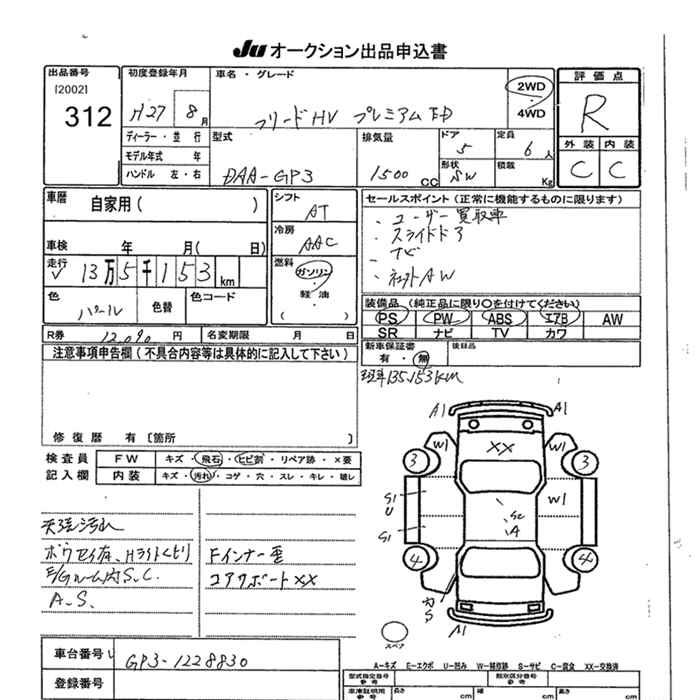 Ju オークション出品申込書
出品番号 初度登録年月 車名・グレード 評価点
[2002] 2WD
312 H27 8月 フリードHV プレミアムED 4WD R
ディーラー・並行 型式 排気量 ドア 定員 外装 内装
モデル年式 年 5 6人
ハンドル 左・右 DAA-GP3 1500cc 形状 SW 積載 Kg C C
車歴 自家用( ) シフト AT セールスポイント(正常に機能するものに限ります)
・ユーザー買取車
冷房 AAC ・スライドドア
車検 年 月( 日) ・ナビ
走行 13万5千153km 燃料 ガソリン・軽油 ( )
色 パール 色替 色コード
装備品(純正品に限り〇を付けてください)
PS PW ABS エアB AW
SR ナビ TV カワ
R券 12,090円 名変期限 月 日 新車保証書 有・無 後日品
注意事項申告欄(不具合内容等は具体的に記入して下さい)
135,153km
修復歴 有〔箇所 〕
A1 A1
検査員 FW キズ・飛石・ヒビ割・リペア跡・×要
記入欄 内装 キズ・汚れ・コゲ・穴・スレ・キレ・破レ
W1 XX W1
3 3
S1 W1
U
天張汚れ S2
S1 A
ボウセイ有、Hライトくもり Fインナー歪
4 4
E/Gルーム内S.C. コアサポートXX
A.S.
S
A1
スペア
車台番号 GP3-1228830
A-キズ E-エクボ U-凹み W-補修跡 S-サビ C-腐食 XX-交換済
登録番号 型式指定番号 参考 類別区分番号 参考
車庫証明用 参考 長さ cm 幅 cm 高さ cm